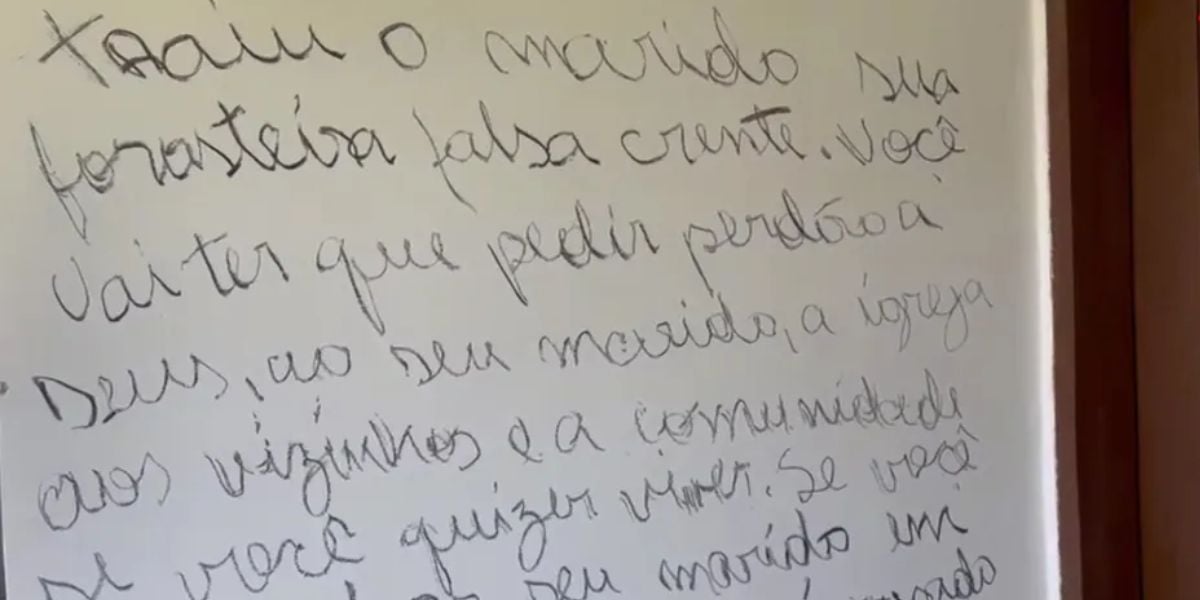 traiu o marido sua
forasteira falsa crente. Você
Vai ter que pedir perdão a
Deus, ao seu marido, a igreja
aos vizinhos e a comunidade
se você quizer viver. Se você
seu marido em